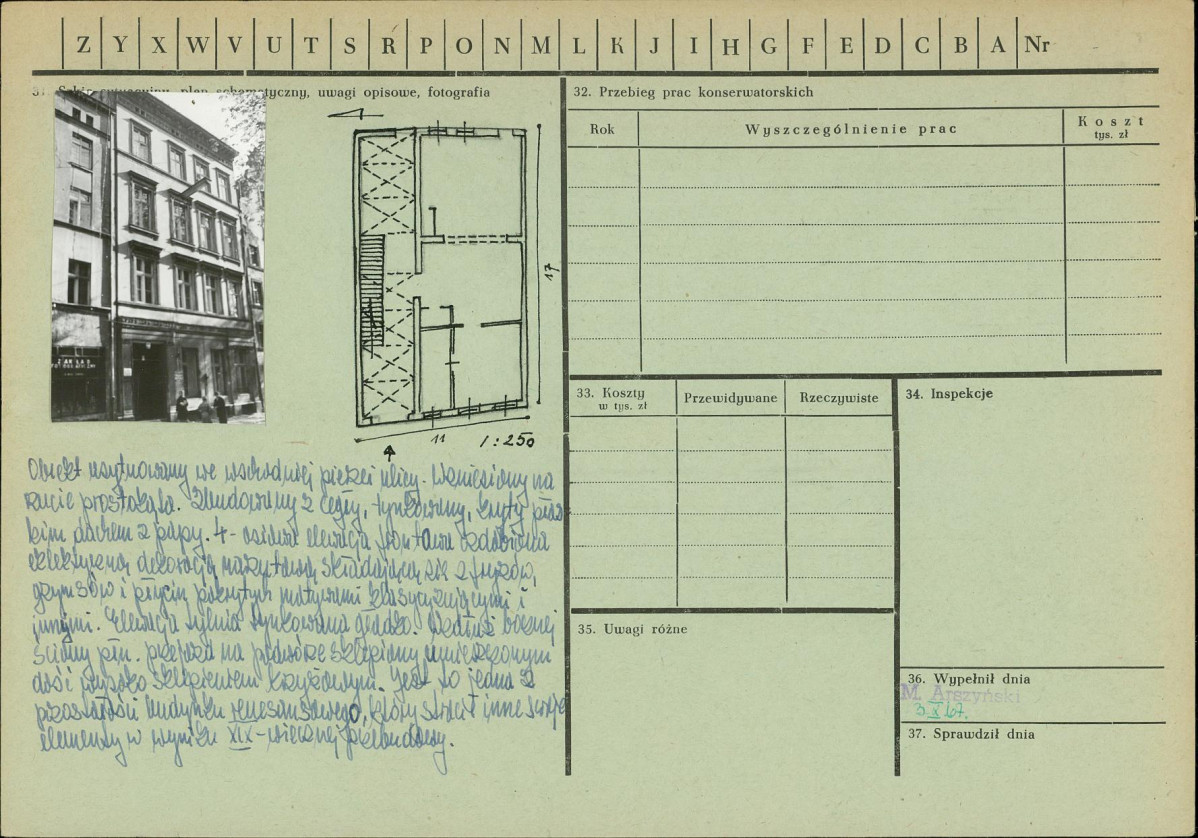 Z Y X W V U T S R P O N M L K J I H G F E D C B A Nr
31. plan schematyczny, uwagi opisowe, fotografia
17
11 1:250
ZAKŁAD
Obiekt usytuowany we wschodniej pierzei ulicy. Wzniesiony na
rzucie prostokąta. Zbudowany z cegły, tynkowany, kryty płas
kim dachem z papy. 4-osiowa elewacja frontowa ozdobiona
eklektyczną dekoracją składającą się z fryzów,
gzymsów i płycin pokrytych motywami klasycyzującymi i
innymi. Elewacja tylnia tynkowana gładko. Wzdłuż bocznej
ściany płn. przejazd na podwórze sklepiony umieszczonym
dość wysoko sklepieniem krzyżowym. Jest to jedna z
pozostałości budynku renesansowego, który stracił inne swoje
elementy w wyniku XIX-wiecznej przebudowy.
32. Przebieg prac konserwatorskich
Rok Wyszczególnienie prac Koszt
tys. zł
33. Koszty
w tys. zł
Przewidywane Rzeczywiste
34. Inspekcje
35. Uwagi różne
36. Wypełnił dnia
M. Arszyński
3.X.67.
37. Sprawdził dnia